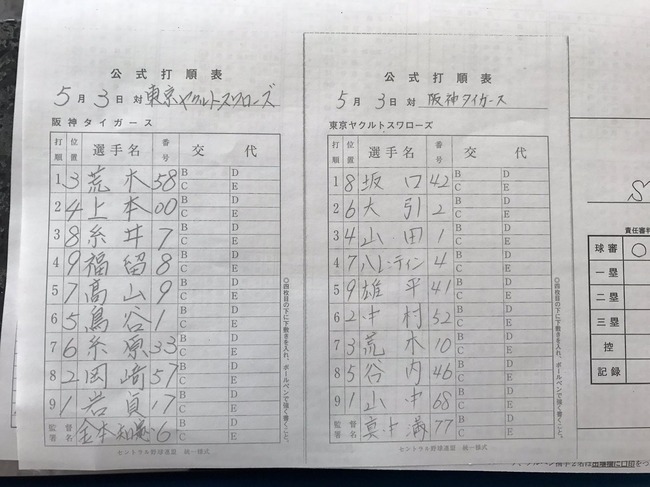 公式打順表
5月3日対 東京ヤクルトスワローズ
阪神タイガース
打順 位置 選手名 番号 交 代
1 3 荒木 58 B D C E
2 4 上本 00 B D C E
3 8 糸井 7 B D C E
4 9 福留 8 B D C E
5 7 高山 9 B D C E
6 5 鳥谷 1 B D C E
7 6 糸原 33 B D C E
8 2 岡﨑 57 B D C E
9 1 岩貞 17 B D C E
監督署名 金本知憲 6 B D C E
○四枚目の下に下敷きを入れ、ボールペンで強く書くこと。
セントラル野球連盟 統一様式
公式打順表
5月3日対 阪神タイガース
東京ヤクルトスワローズ
打順 位置 選手名 番号 交 代
1 8 坂口 42 B D C E
2 6 大引 2 B D C E
3 4 山田 1 B D C E
4 7 バレンティン 4 B D C E
5 9 雄平 41 B D C E
6 2 中村 52 B D C E
7 3 荒木 10 B D C E
8 5 谷内 46 B D C E
9 1 山中 68 B D C E
監督署名 真中満 77 B D C E
○四枚目の下に下敷きを入れ、ボールペンで強く書くこと。
セントラル野球連盟 統一様式
S
責任審判
球審 ○
一塁
二塁
三塁
控
記録